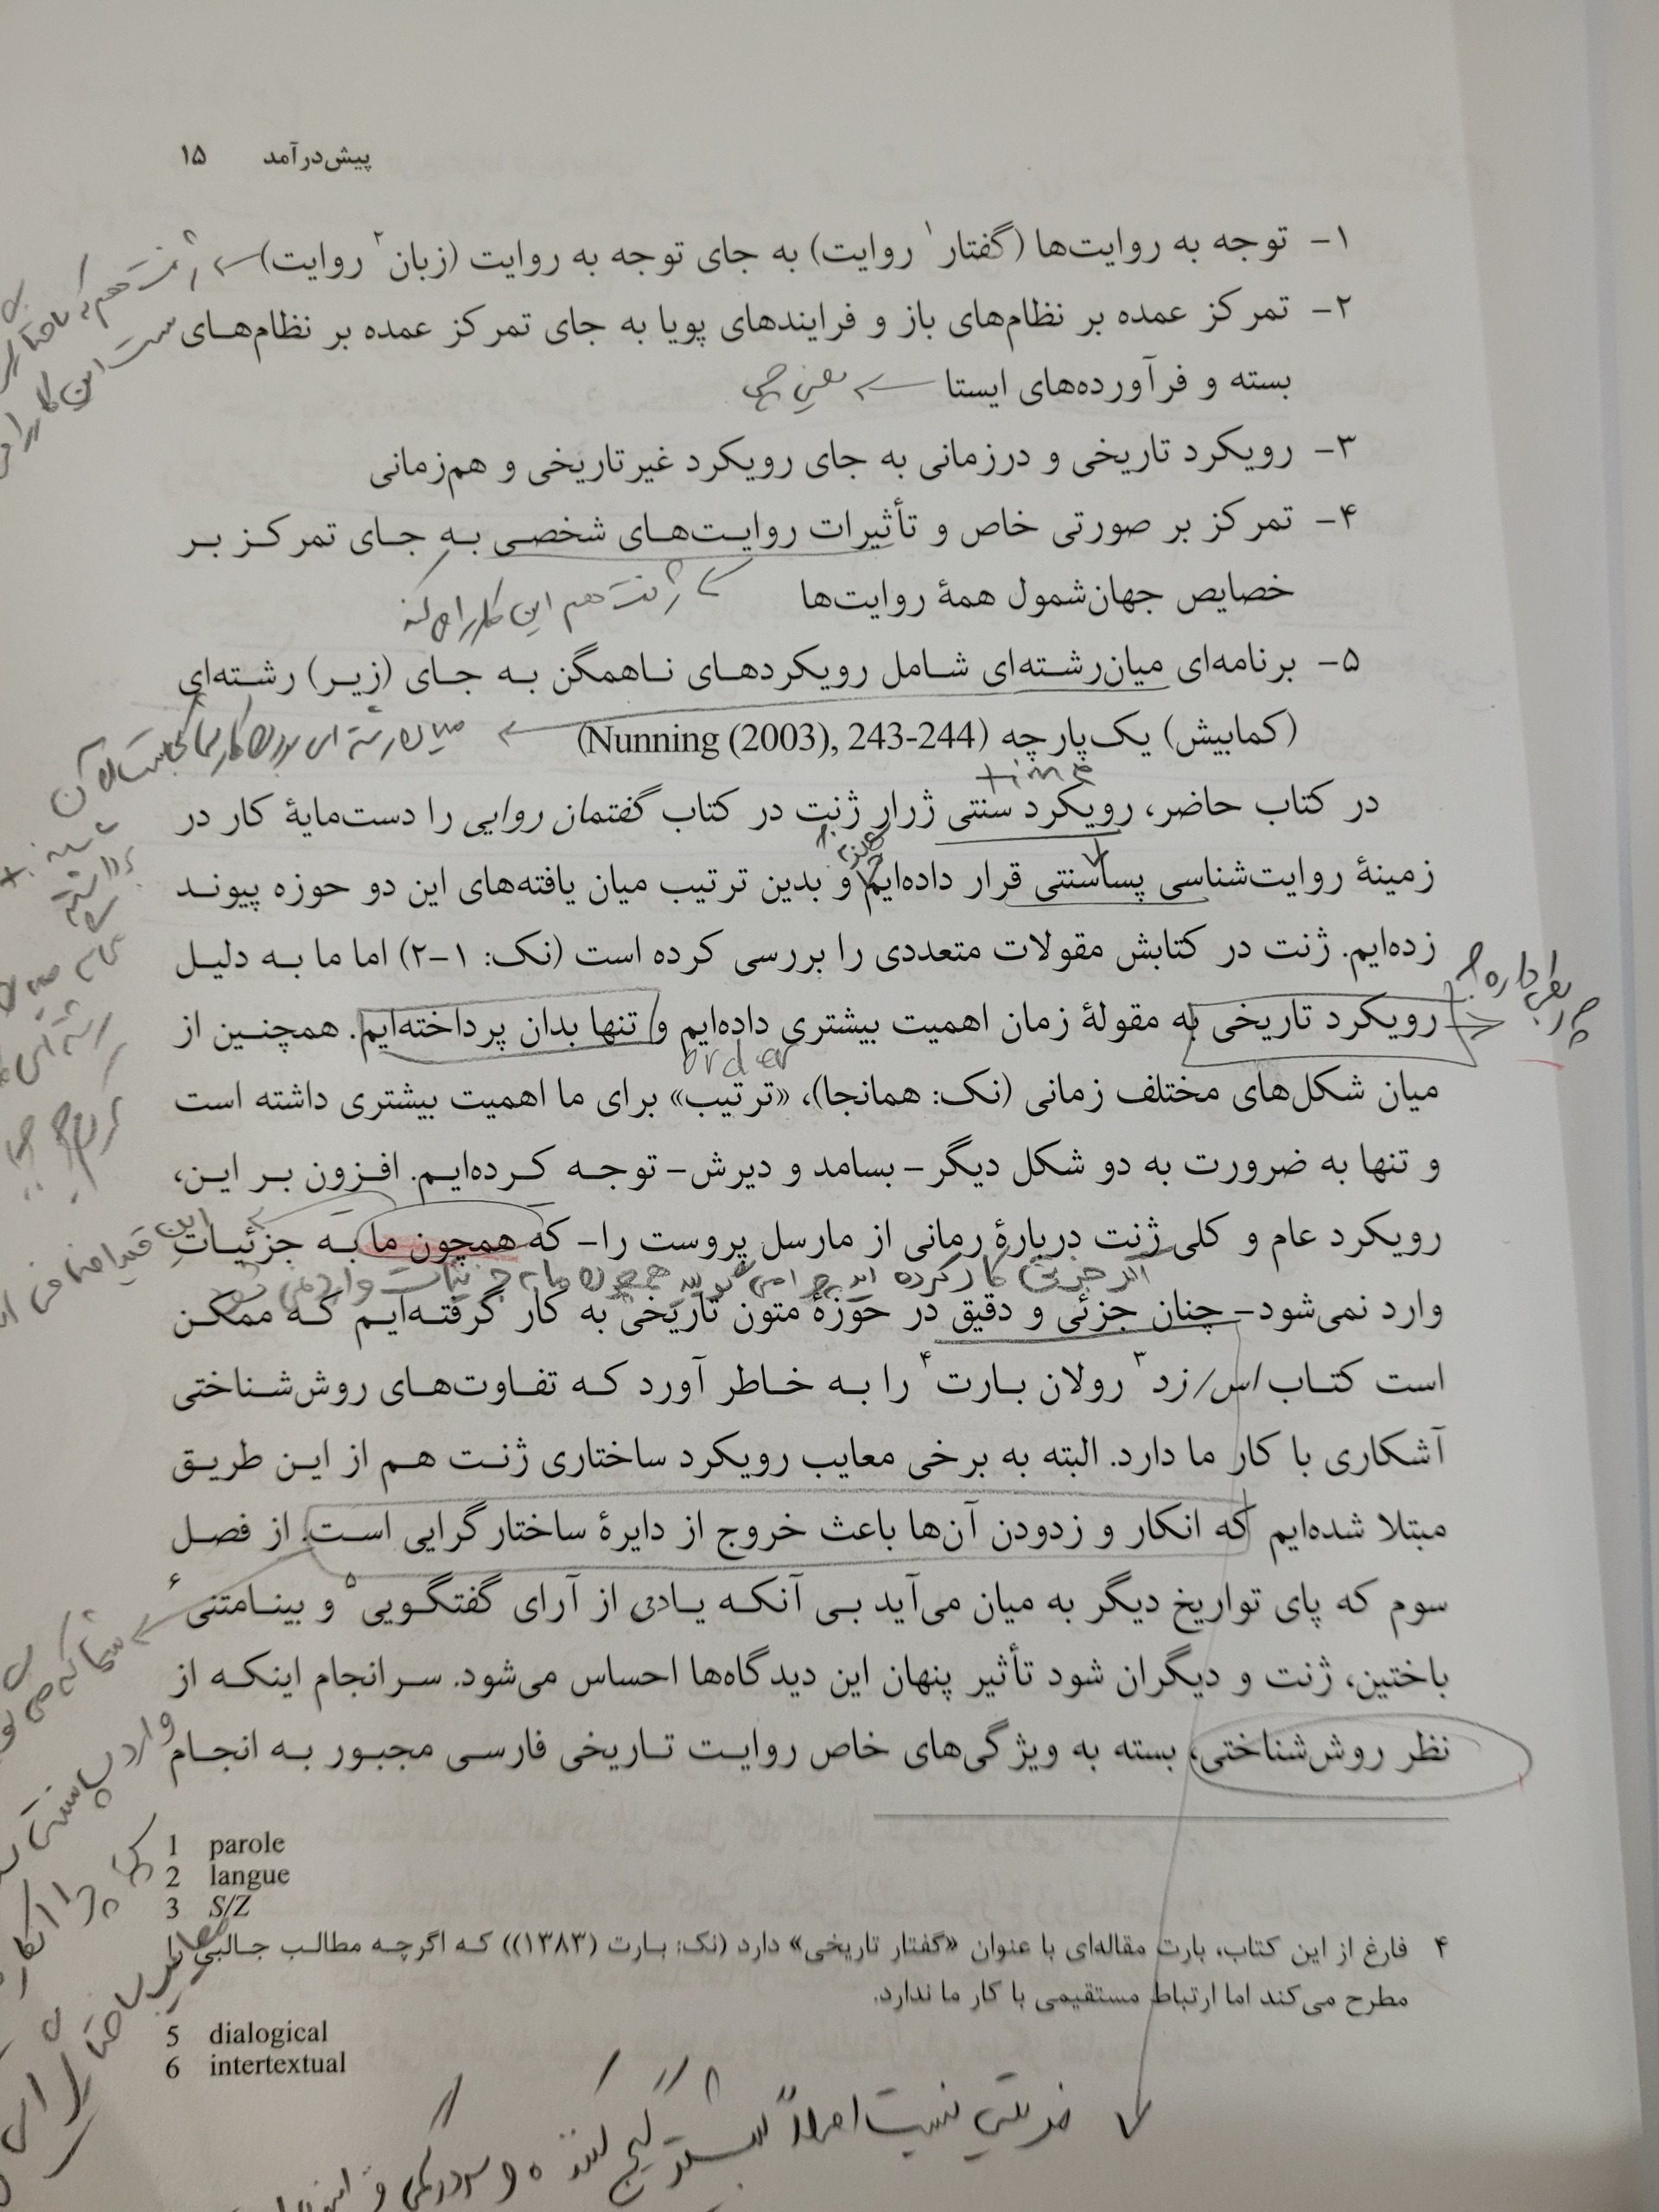 پیش‌درآمد ۱۵
۱- توجه به روایت‌ها (گفتار۱ روایت) به جای توجه به روایت (زبان۲ روایت)
۲- تمرکز عمده بر نظام‌های باز و فرایندهای پویا به جای تمرکز عمده بر نظام‌های
بسته و فرآورده‌های ایستا ← یعنی چی
۳- رویکرد تاریخی و درزمانی به جای رویکرد غیرتاریخی و هم‌زمانی
۴- تمرکز بر صورتی خاص و تأثیرات روایت‌های شخصی به جای تمرکز بر
خصایص جهان‌شمول همهٔ روایت‌ها
ژنت هم این کار را می‌کند
۵- برنامه‌ای میان‌رشته‌ای شامل رویکردهای ناهمگن به جای (زیر) رشته‌ای
(کمابیش) یک‌پارچه (Nunning (2003), 243-244)
میان رشته ای بودن کار شما کجاست
time
در کتاب حاضر، رویکرد سنتی ژرار ژنت در کتاب گفتمان روایی را دست‌مایهٔ کار در
زمینهٔ روایت‌شناسی پساسنتی قرار داده‌ایم و بدین ترتیب میان یافته‌های این دو حوزه پیوند
زده‌ایم. ژنت در کتابش مقولات متعددی را بررسی کرده است (نک: ۱-۲) اما ما به دلیل
چه ربطی داره؟
رویکرد تاریخی به مقولهٔ زمان اهمیت بیشتری داده‌ایم و تنها بدان پرداخته‌ایم. همچنین از
order
میان شکل‌های مختلف زمانی (نک: همانجا)، «ترتیب» برای ما اهمیت بیشتری داشته است
و تنها به ضرورت به دو شکل دیگر- بسامد و دیرش- توجه کرده‌ایم. افزون بر این،
رویکرد عام و کلی ژنت دربارهٔ رمانی از مارسل پروست را- که همچون ما به جزئیاتِ
وارد نمی‌شود- چنان جزئی و دقیق در حوزهٔ متون تاریخی به کار گرفته‌ایم که ممکن
است کتاب اس/زد۳ رولان بارت۴ را به خاطر آورد که تفاوت‌های روش‌شناختی
آشکاری با کار ما دارد. البته به برخی معایب رویکرد ساختاری ژنت هم از این طریق
مبتلا شده‌ایم که انکار و زدودن آن‌ها باعث خروج از دایرهٔ ساختارگرایی است. از فصل
سوم که پای تواریخ دیگر به میان می‌آید بی آنکه یادی از آرای گفتگویی۵ و بینامتنی۶
باختین، ژنت و دیگران شود تأثیر پنهان این دیدگاه‌ها احساس می‌شود. سرانجام اینکه از
نظر روش‌شناختی، بسته به ویژگی‌های خاص روایت تاریخی فارسی مجبور به انجام
1 parole
2 langue
3 S/Z
۴ فارغ از این کتاب، بارت مقاله‌ای با عنوان «گفتار تاریخی» دارد (نک: بارت (۱۳۸۳)) که اگرچه مطالب جالبی را
مطرح می‌کند اما ارتباط مستقیمی با کار ما ندارد.
5 dialogical
6 intertextual